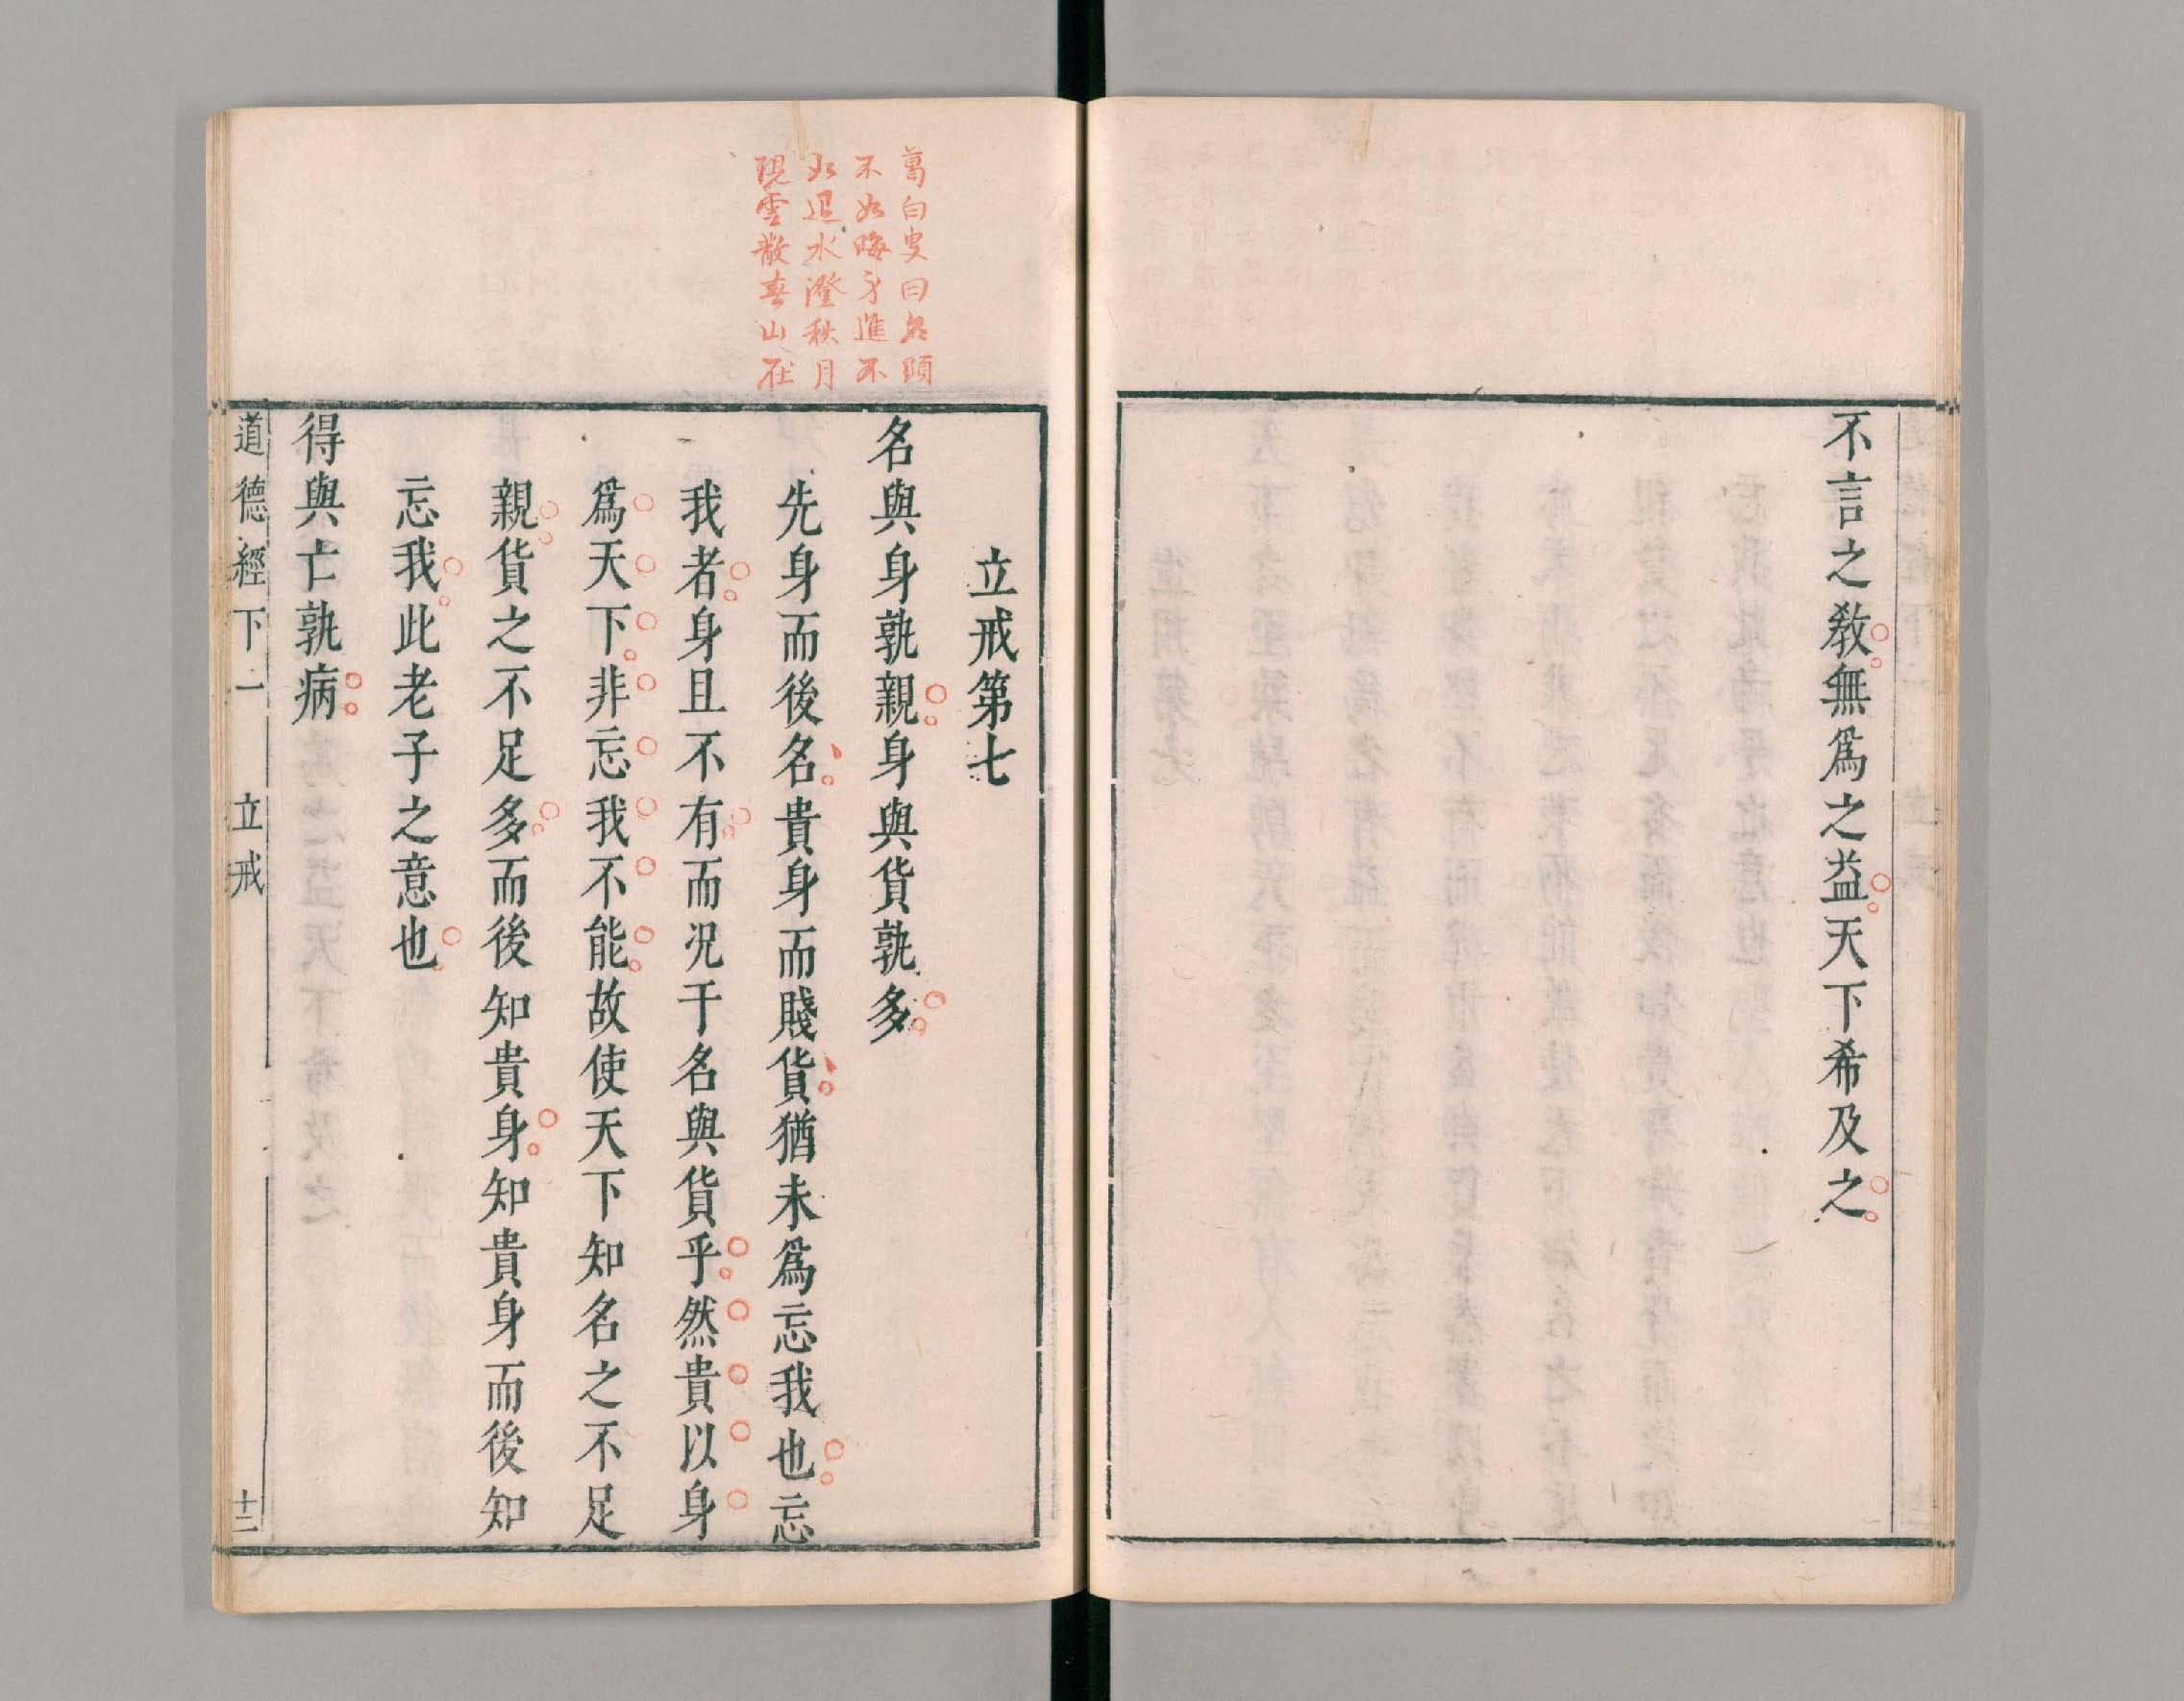 不言之教無爲之益天下希及之
葛白叟曰名顯
不如晦身進不
如退水澄秋月
現雲散春山在
立戒第七
名與身孰親身與貨孰多
先身而後名貴身而賤貨猶未爲忘我也忘
我者身且不有而况于名與貨乎然貴以身
爲天下非忘我不能故使天下知名之不足
親貨之不足多而後知貴身知貴身而後知
忘我此老子之意也
得與亡孰病
道德經下一 立戒 十二